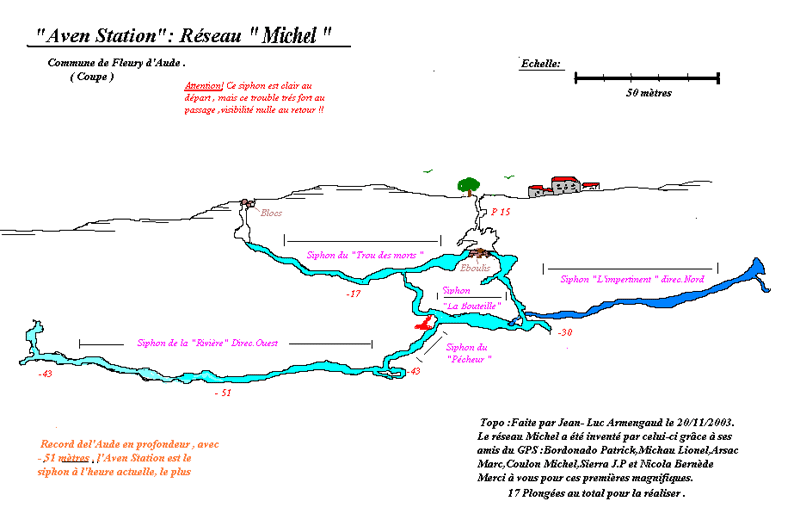 "Aven Station": Réseau " Michel "
Commune de Fleury d'Aude .
( Coupe )
Echelle:
50 mètres
Attention! Ce siphon est clair au
départ , mais ce trouble trés fort au
passage ,visibilité nulle au retour !!
Blocs
P 15
Siphon du "Trou des morts "
Eboulis
Siphon "L'impertinent " direc.Nord
-17
Siphon
"La Bouteille"
-30
Siphon de la "Rivière" Direc.Ouest
Siphon du
"Pêcheur "
-43
-43
- 51
Record del'Aude en profondeur , avec
- 51 mètres , l'Aven Station est le
siphon à l'heure actuelle, le plus
Topo :Faite par Jean- Luc Armengaud le 20/11/2003.
Le réseau Michel a été inventé par celui-ci grâce à ses
amis du GPS :Bordonado Patrick,Michau Lionel,Arsac
Marc,Coulon Michel,Sierra J.P et Nicola Bernède
Merci à vous pour ces premières magnifiques.
17 Plongées au total pour la réaliser .